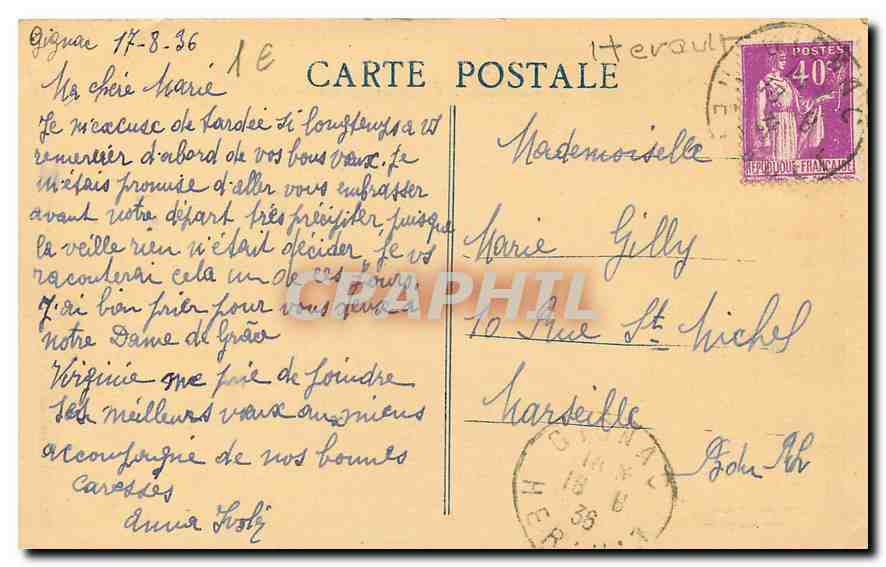 Gignac 17-8-36
1 €
Herault
CARTE POSTALE
POSTES
40c
REPUBLIQUE FRANCAISE
Ma chère Marie
Je m'excuse de tardée si longtemps a vs
remercier d'abord de vos bons vœux. Je
m'étais promise d'aller vous embrasser
avant notre départ très précipiter, puisque
la veille rien n'était décider. Je vs
raconterai cela un de ces jours.
J'ai bien prier pour vous deux à
notre Dame de Grâce
Virginie me prie de joindre
ses meilleurs vœux aux miens
accompagné de nos bonnes
caresses
Anna
Mademoiselle
Marie Gilly
10 Rue St Michel
Marseille
B du Rh
GIGNAC
18 8
36
HER
CPAPHIL